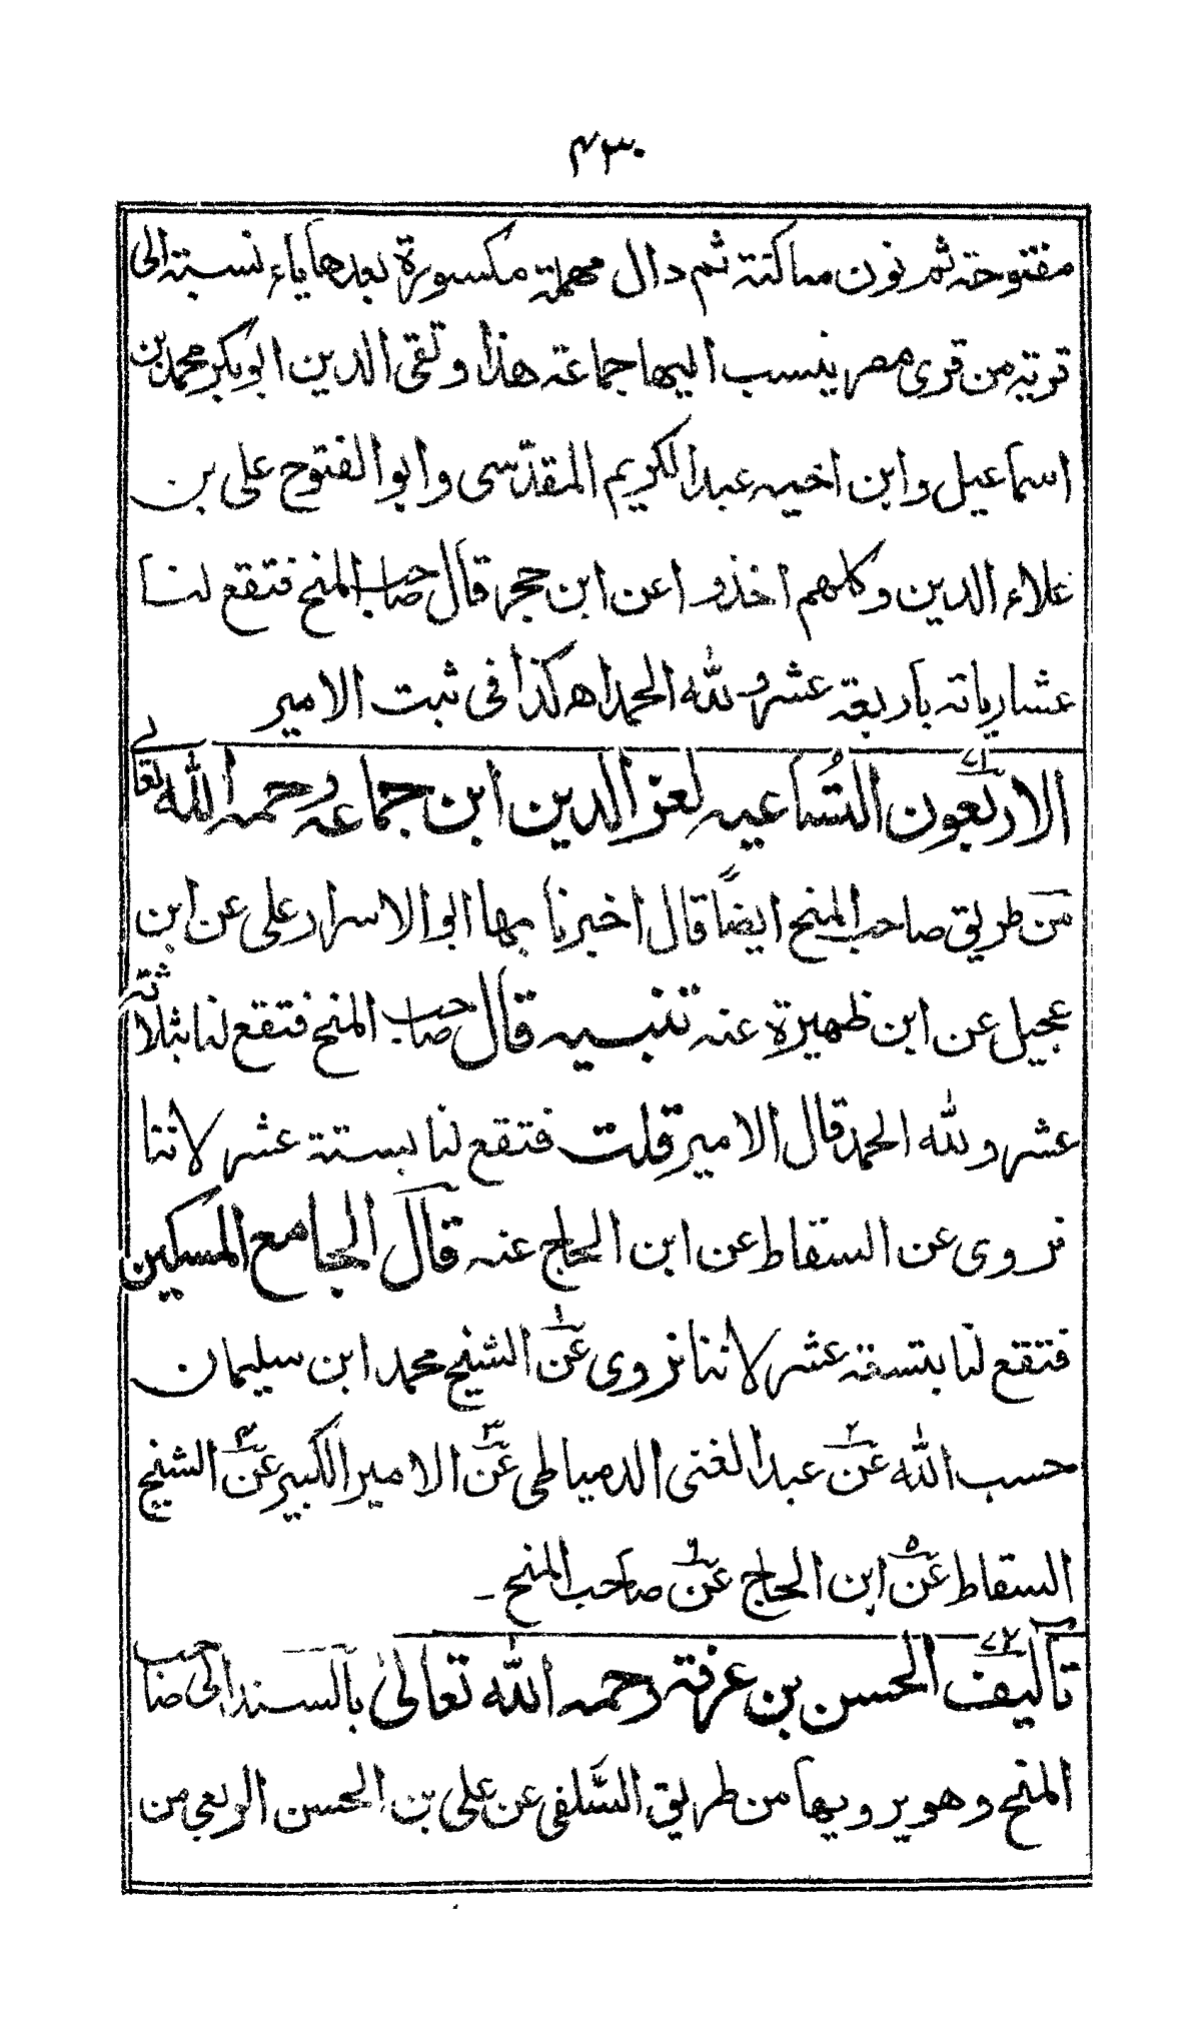 ۴۳۰
مفتوحة ثم نون ساكنة ثم دال مهملة مكسورة بعدها ياء نسبة الى
قرية من قرى مصر ينسب اليها جماعة هذا وتقى الدين ابوبكر محمد بن
اسماعيل وابن اخيه عبد الكريم المقدّسى وابو الفتوح على بن
علاء الدين وكلهم اخذوا عن ابن حجر قال صاحب المنح فتقع لنا
عشارياته باربعة عشر ولله الحمد اه كذا فى ثبت الامير
الاربعون التُساعيه لعز الدين ابن جماعه رحمه الله تعالى
من طريق صاحب المنح ايضاً قال اخبرنا بها ابو الاسرار على عن ابن
عجيل عن ابن ظهيرة عنه تنبيه قال صاحب المنح فتقع لنا بثلاثة
عشر ولله الحمد قال الامير قلت فتقع لنا بستة عشر لاننا
نروى عن السقاط عن ابن الحاج عنه قال الجامع المسكين
فتقع لنا بتسعة عشر لاننا نروى عن ۱ الشيخ محمد ابن سليمان
حسب الله عن ۲ عبد الغنى الدمياطى عن ۳ الامير الكبير عن ۴ الشيخ
السقاط عن ۵ ابن الحاج عن ۶ صاحب المنح ـ
تآليف الحسن بن عرفة رحمه الله تعالىٰ بالسند الى صاحب
المنح وهو يرويها من طريق السَّلفى عن على بن الحسن الربعى من